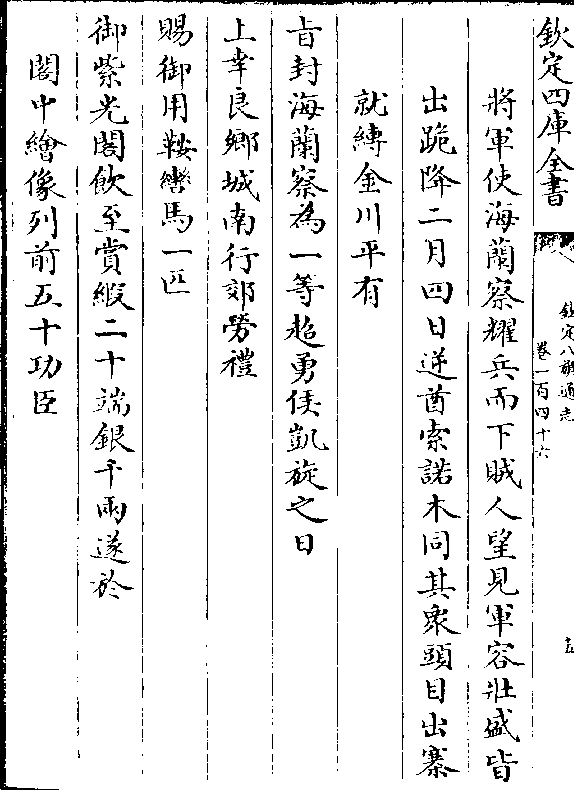 欽定四庫全書
欽定八旗通志
卷一百四十六
將軍使海蘭察耀兵而下賊人望見軍容壯盛皆
出跪降二月四日逆酋索諾木同其衆頭目出寨
就縳金川平有
㫖封海蘭察為一等超勇侯凱旋之日
上幸良鄉城南行郊勞禮
賜御用鞍轡馬一匹
御紫光閣飲至賞緞二十端銀千兩遂於
閣中繪像列前五十功臣